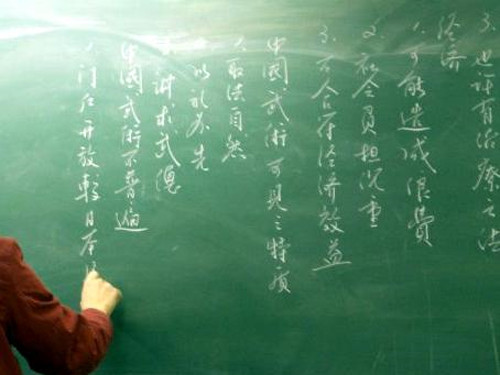 3. 也许有治療方法
经济
1. 可能造成浪费
2. 社会负担沉重
3. 不合符经济效益
中國武術可見之特质
1. 取法自然
以礼为先
讲求武德
中國武術不普遍
1. 门户开放較日本